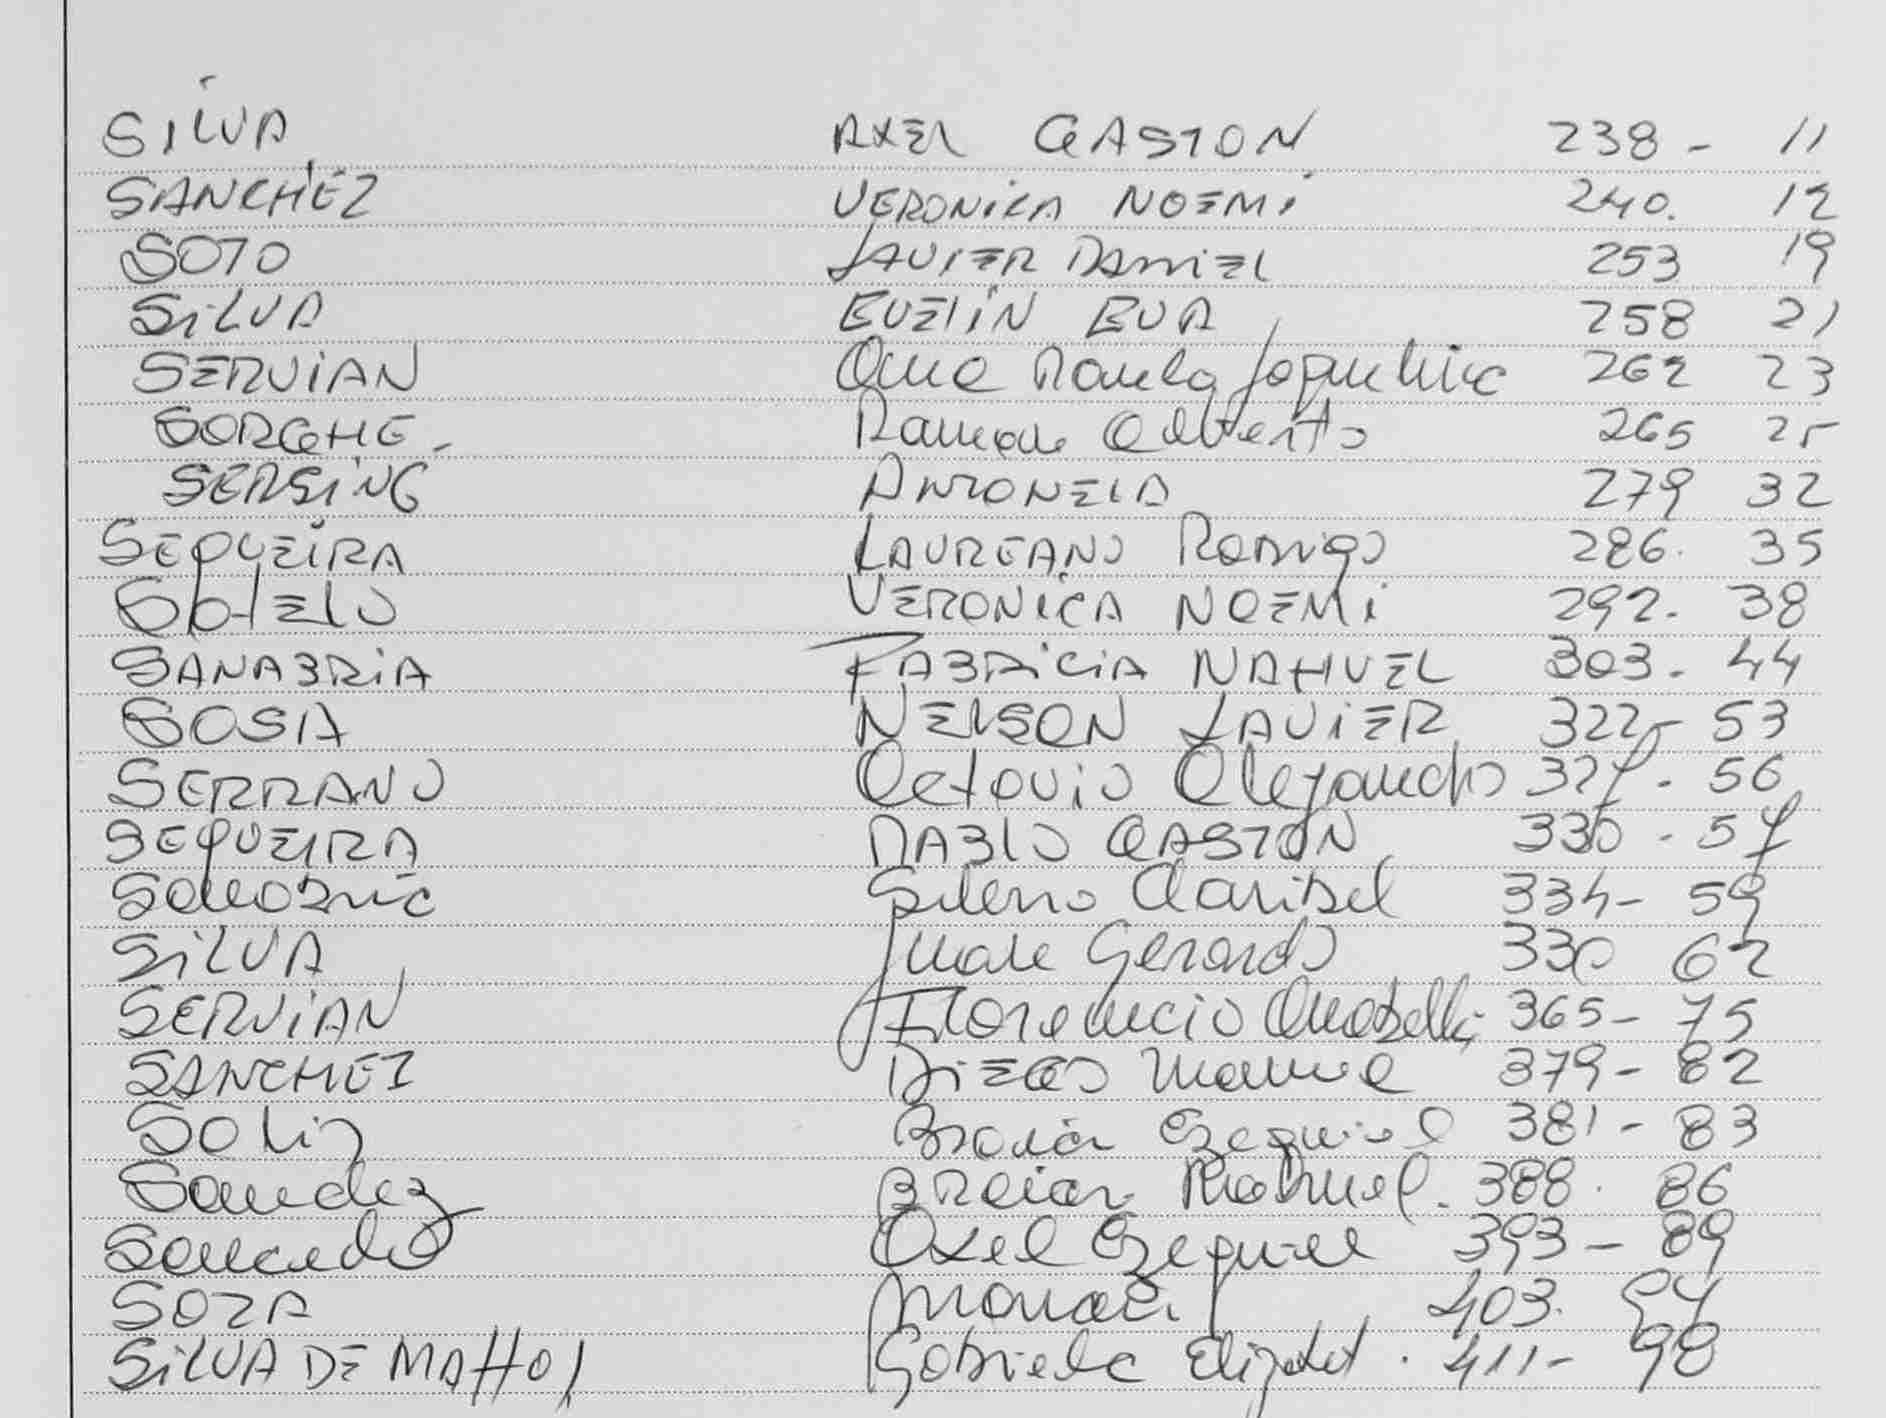 SILVA AXEL GASTON 238 - 11
SANCHEZ VERONICA NOEMI 240. 12
SOTO JAVIER DANIEL 253 19
SILVA EVELIN EVA 258 21
SERVIAN Ana Paula Jaqueline 262 23
BORGHE. Ramon Alberto 265 25
SERSING ANTONELA 279 32
SEQUEIRA LAUREANO RODRIGO 286. 35
SOTELO VERONICA NOEMI 292. 38
SANABRIA FABRICIA NAHUEL 303. 44
SOSA NELSON JAVIER 322 - 53
SERRANO Octavio Alejandro 327. 56
SEQUEIRA PABLO GASTON 330 - 57
Claribel 334 - 59
SILVA Juan Gerardo 330 62
SERVIAN Florencia Anabella 365 - 75
SANCHEZ DIEGO Manuel 379 - 82
SOLIZ Braian Ezequiel 381 - 83
Sanchez BRaian Nahuel. 388. 86
Saucedo Axel Ezequiel 393 - 89
SOZA 403. 94
SILVA DE MATTOS Gabriela Elizabet. 411 - 98